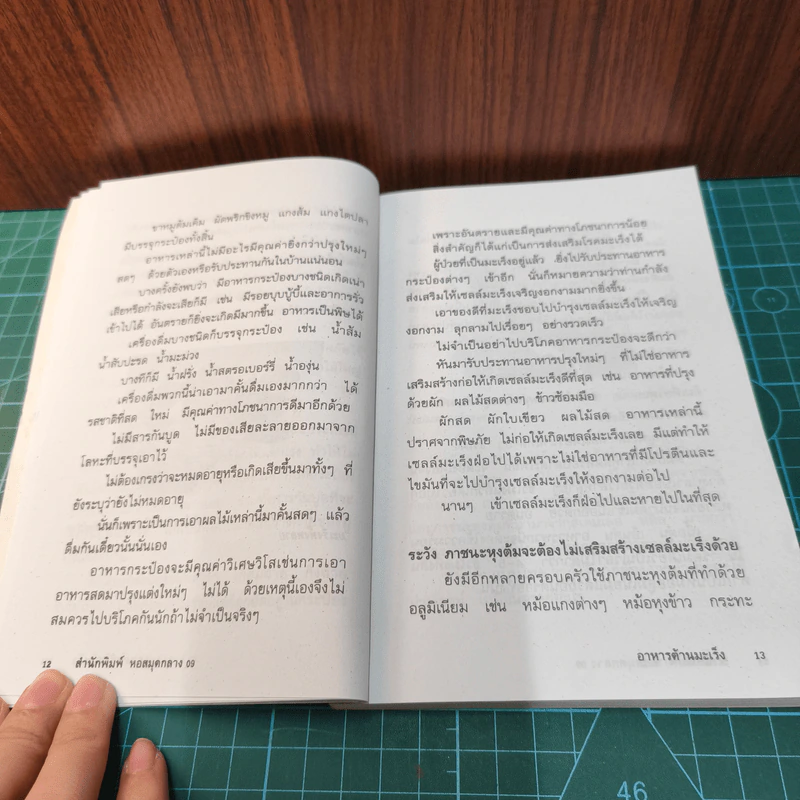 ขาหมูต้มเค็ม ผัดพริกขิงหมู แกงส้ม แกงไตปลา
มีบรรจุกระป๋องทั้งสิ้น
อาหารเหล่านี้ไม่มีอะไรมีคุณค่ายิ่งกว่าปรุงใหม่ๆ
สดๆ ด้วยตัวเองหรือรับประทานกันในบ้านแน่นอน
บางครั้งยังพบว่า มีอาหารกระป๋องบางชนิดเกิดเน่า
เสียหรือกำลังจะเสียก็มี เช่น มีรอยบุบบู้บี้และอาการรั่ว
เข้าไปได้ อันตรายก็ยิ่งจะเกิดมีมากขึ้น อาหารเป็นพิษได้
เครื่องดื่มบางชนิดก็บรรจุกระป๋อง เช่น น้ำส้ม
น้ำสับปะรด น้ำมะม่วง
บางทีก็มี น้ำฝรั่ง น้ำสตรอเบอร์รี่ น้ำองุ่น
เครื่องดื่มพวกนี้น่าเอามาคั้นดื่มเองมากกว่า ได้
รสชาติที่สด ใหม่ มีคุณค่าทางโภชนาการดีมาอีกด้วย
ไม่มีสารกันบูด ไม่มีของเสียละลายออกมาจาก
โลหะที่บรรจุเอาไว้
ไม่ต้องเกรงว่าจะหมดอายุหรือเกิดเสียขึ้นมาทั้งๆ ที่
ยังระบุว่ายังไม่หมดอายุ
นั่นก็เพราะเป็นการเอาผลไม้เหล่านี้มาคั้นสดๆ แล้ว
ดื่มกันเดี๋ยวนั้นนั่นเอง
อาหารกระป๋องจะมีคุณค่าวิเศษวิโสเช่นการเอา
อาหารสดมาปรุงแต่งใหม่ๆ ไม่ได้ ด้วยเหตุนี้เองจึงไม่
สมควรไปบริโภคกันนักถ้าไม่จำเป็นจริงๆ
12 สำนักพิมพ์ หอสมุดกลาง 09
เพราะอันตรายและมีคุณค่าทางโภชนาการน้อย
สิ่งสำคัญก็ได้แก่เป็นการส่งเสริมโรคมะเร็งได้
ผู้ป่วยที่เป็นมะเร็งอยู่แล้ว ยิ่งไปรับประทานอาหาร
กระป๋องต่างๆ เข้าอีก นั่นก็หมายความว่าท่านกำลัง
ส่งเสริมให้เซลล์มะเร็งเจริญงอกงามมากยิ่งขึ้น
เอาของดีที่มะเร็งชอบไปบำรุงเซลล์มะเร็งให้เจริญ
งอกงาม ลุกลามไปเรื่อยๆ อย่างรวดเร็ว
ไม่จำเป็นอย่าไปบริโภคอาหารกระป๋องจะดีกว่า
หันมารับประทานอาหารปรุงใหม่ๆ ที่ไม่ใช่อาหาร
เสริมสร้างก่อให้เกิดเซลล์มะเร็งดีที่สุด เช่น อาหารที่ปรุง
ด้วยผัก ผลไม้สดต่างๆ ข้าวซ้อมมือ
ผักสด ผักใบเขียว ผลไม้สด อาหารเหล่านี้
ปราศจากพิษภัย ไม่ก่อให้เกิดเซลล์มะเร็งเลย มีแต่ทำให้
เซลล์มะเร็งฝ่อไปได้เพราะไม่ใช่อาหารที่มีโปรตีนและ
ไขมันที่จะไปบำรุงเซลล์มะเร็งให้งอกงามต่อไป
นานๆ เข้าเซลล์มะเร็งก็ฝ่อไปและหายไปในที่สุด
ระวัง ภาชนะหุงต้มจะต้องไม่เสริมสร้างเซลล์มะเร็งด้วย
ยังมีอีกหลายครอบครัวใช้ภาชนะหุงต้มที่ทำด้วย
อลูมิเนียม เช่น หม้อแกงต่างๆ หม้อหุงข้าว กระทะ
อาหารต้านมะเร็ง 13
46